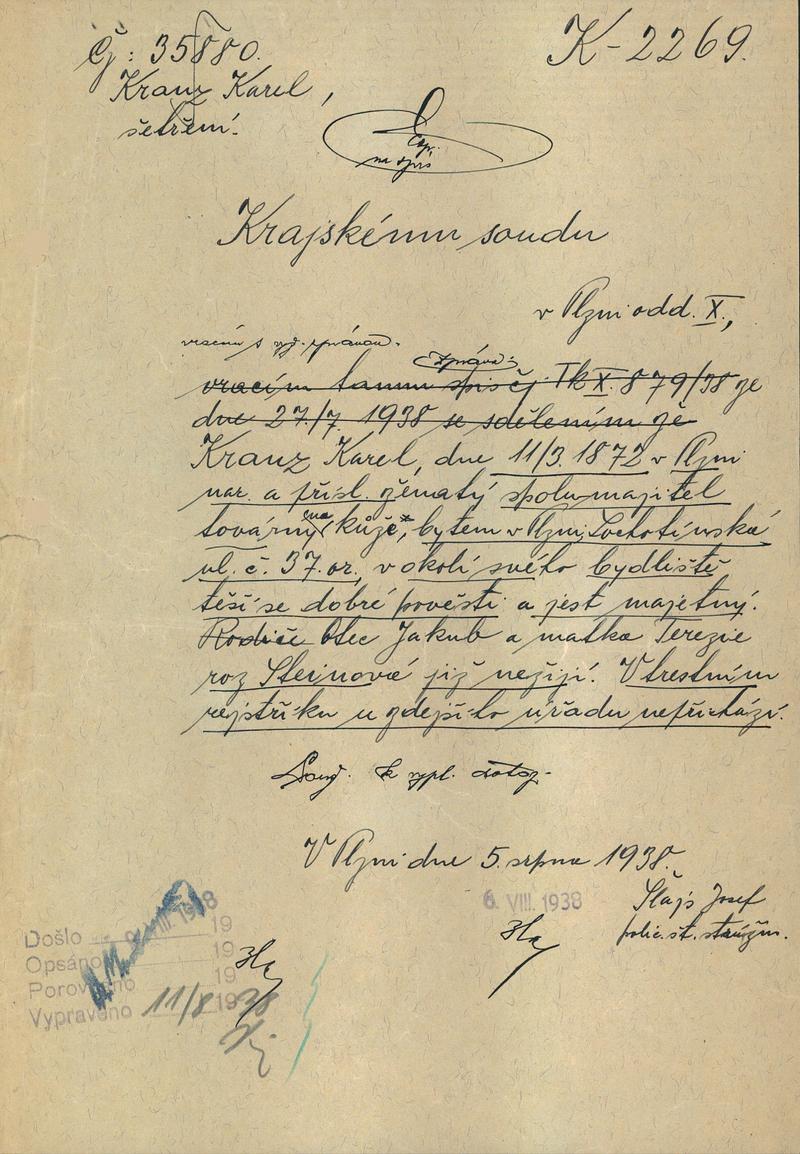 Čj: 35880.
K-2269.
Kranz Karel,
šetření.
Krajskému soudu
v Plzni odd. X.,
vrácení s vyř. zprávou.
zpráva:
vracím tamní spis čj. Tk X. 879/38 ze
dne 27./7. 1938 se sdělením že
Kranz Karel, dne 11/3. 1872 v Plzni
nar. a přísl. ženatý spolumajitel
továrny na kůže, bytem v Plzni, Lochotínská
ul. č. 37. or., v okolí svého bydliště
těší se dobré pověsti a jest majetný.
Rodiče Otec Jakub a matka Terezie
roz Steinová již nežijí. V trestním
rejstříku u zdejšího úřadu nepřichází.
k vypl. dotaz.
V Plzni dne 5. srpna 1938.
6. VIII. 1938
Šlajs Josef
polic. st. strážm.
Došlo VIII. 1938 19
Opsáno 19
Porovnáno 19
Vypraveno 11/8 1938